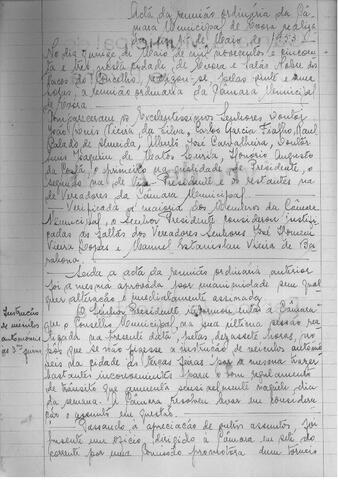 Acta da reunião ordinária da Câ-
mara Municipal de Evora realiza-
da em 15 de Maio de 1953.
No dia quinze de Maio de mil novecentos e cincoen-
ta e três, nesta cidade de Evora e Salão Nobre dos
Paços do Concelho, realizou-se, pelas vinte e uma
horas, a reunião ordinária da Câmara Municipal
de Evora.
Compareceram os Excelentissimos Senhores Doutor
João Luis Vieira da Silva, Carlos Garcia Fialho, Raul
de Almeida, Alberto José Carvalheira, Doutor
Luis Joaquim de Matos, Honorio Augusto
da Costa, o primeiro na qualidade de Presidente, o
segundo na de Vice-Presidente e os restantes na
de Vereadores da Câmara Municipal.
Verificada a maioria dos Membros da Câmara
Municipal, o Senhor Presidente considerou justifi-
cadas as faltas dos Vereadores Senhores José
Vieira e Manuel Estanislau Vieira de Ba-
rahona.
Lida a acta da reunião ordinária anterior
foi a mesma aprovada por unanimidade sem qual-
quer alteração e imediatamente assinada.
Instrução
de veiculos
automoveis
às 3ªs feiras
O Senhor Presidente informou a Câmara
que o Conselho Municipal, na sua última sessão rea-
lizada na presente data, pelas dezassete horas, pro-
pôs que se não fizesse a instrução de veiculos automo-
veis pela cidade às terças feiras por a mesma trazer
bastantes inconvenientes para o bom regulamento
de trânsito que aumenta sensivelmente naquele dia
da semana. A Câmara resolveu tomar em considera-
ção o assunto em questão.
Passando à apreciação de outros assuntos, foi
presente um oficio, dirigido à Câmara em sete do
corrente por uma Comissão promotora dum torneio